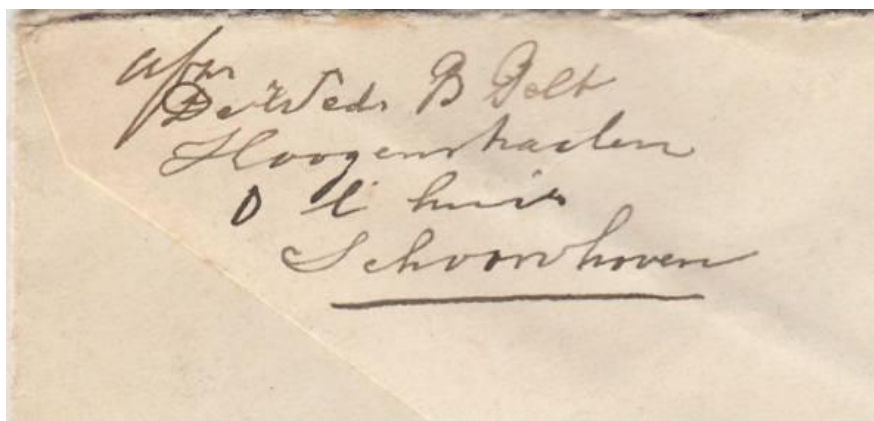 afzr
De Wed. B Bolt
Hoogenstraaten
O l huis
Schoonhoven